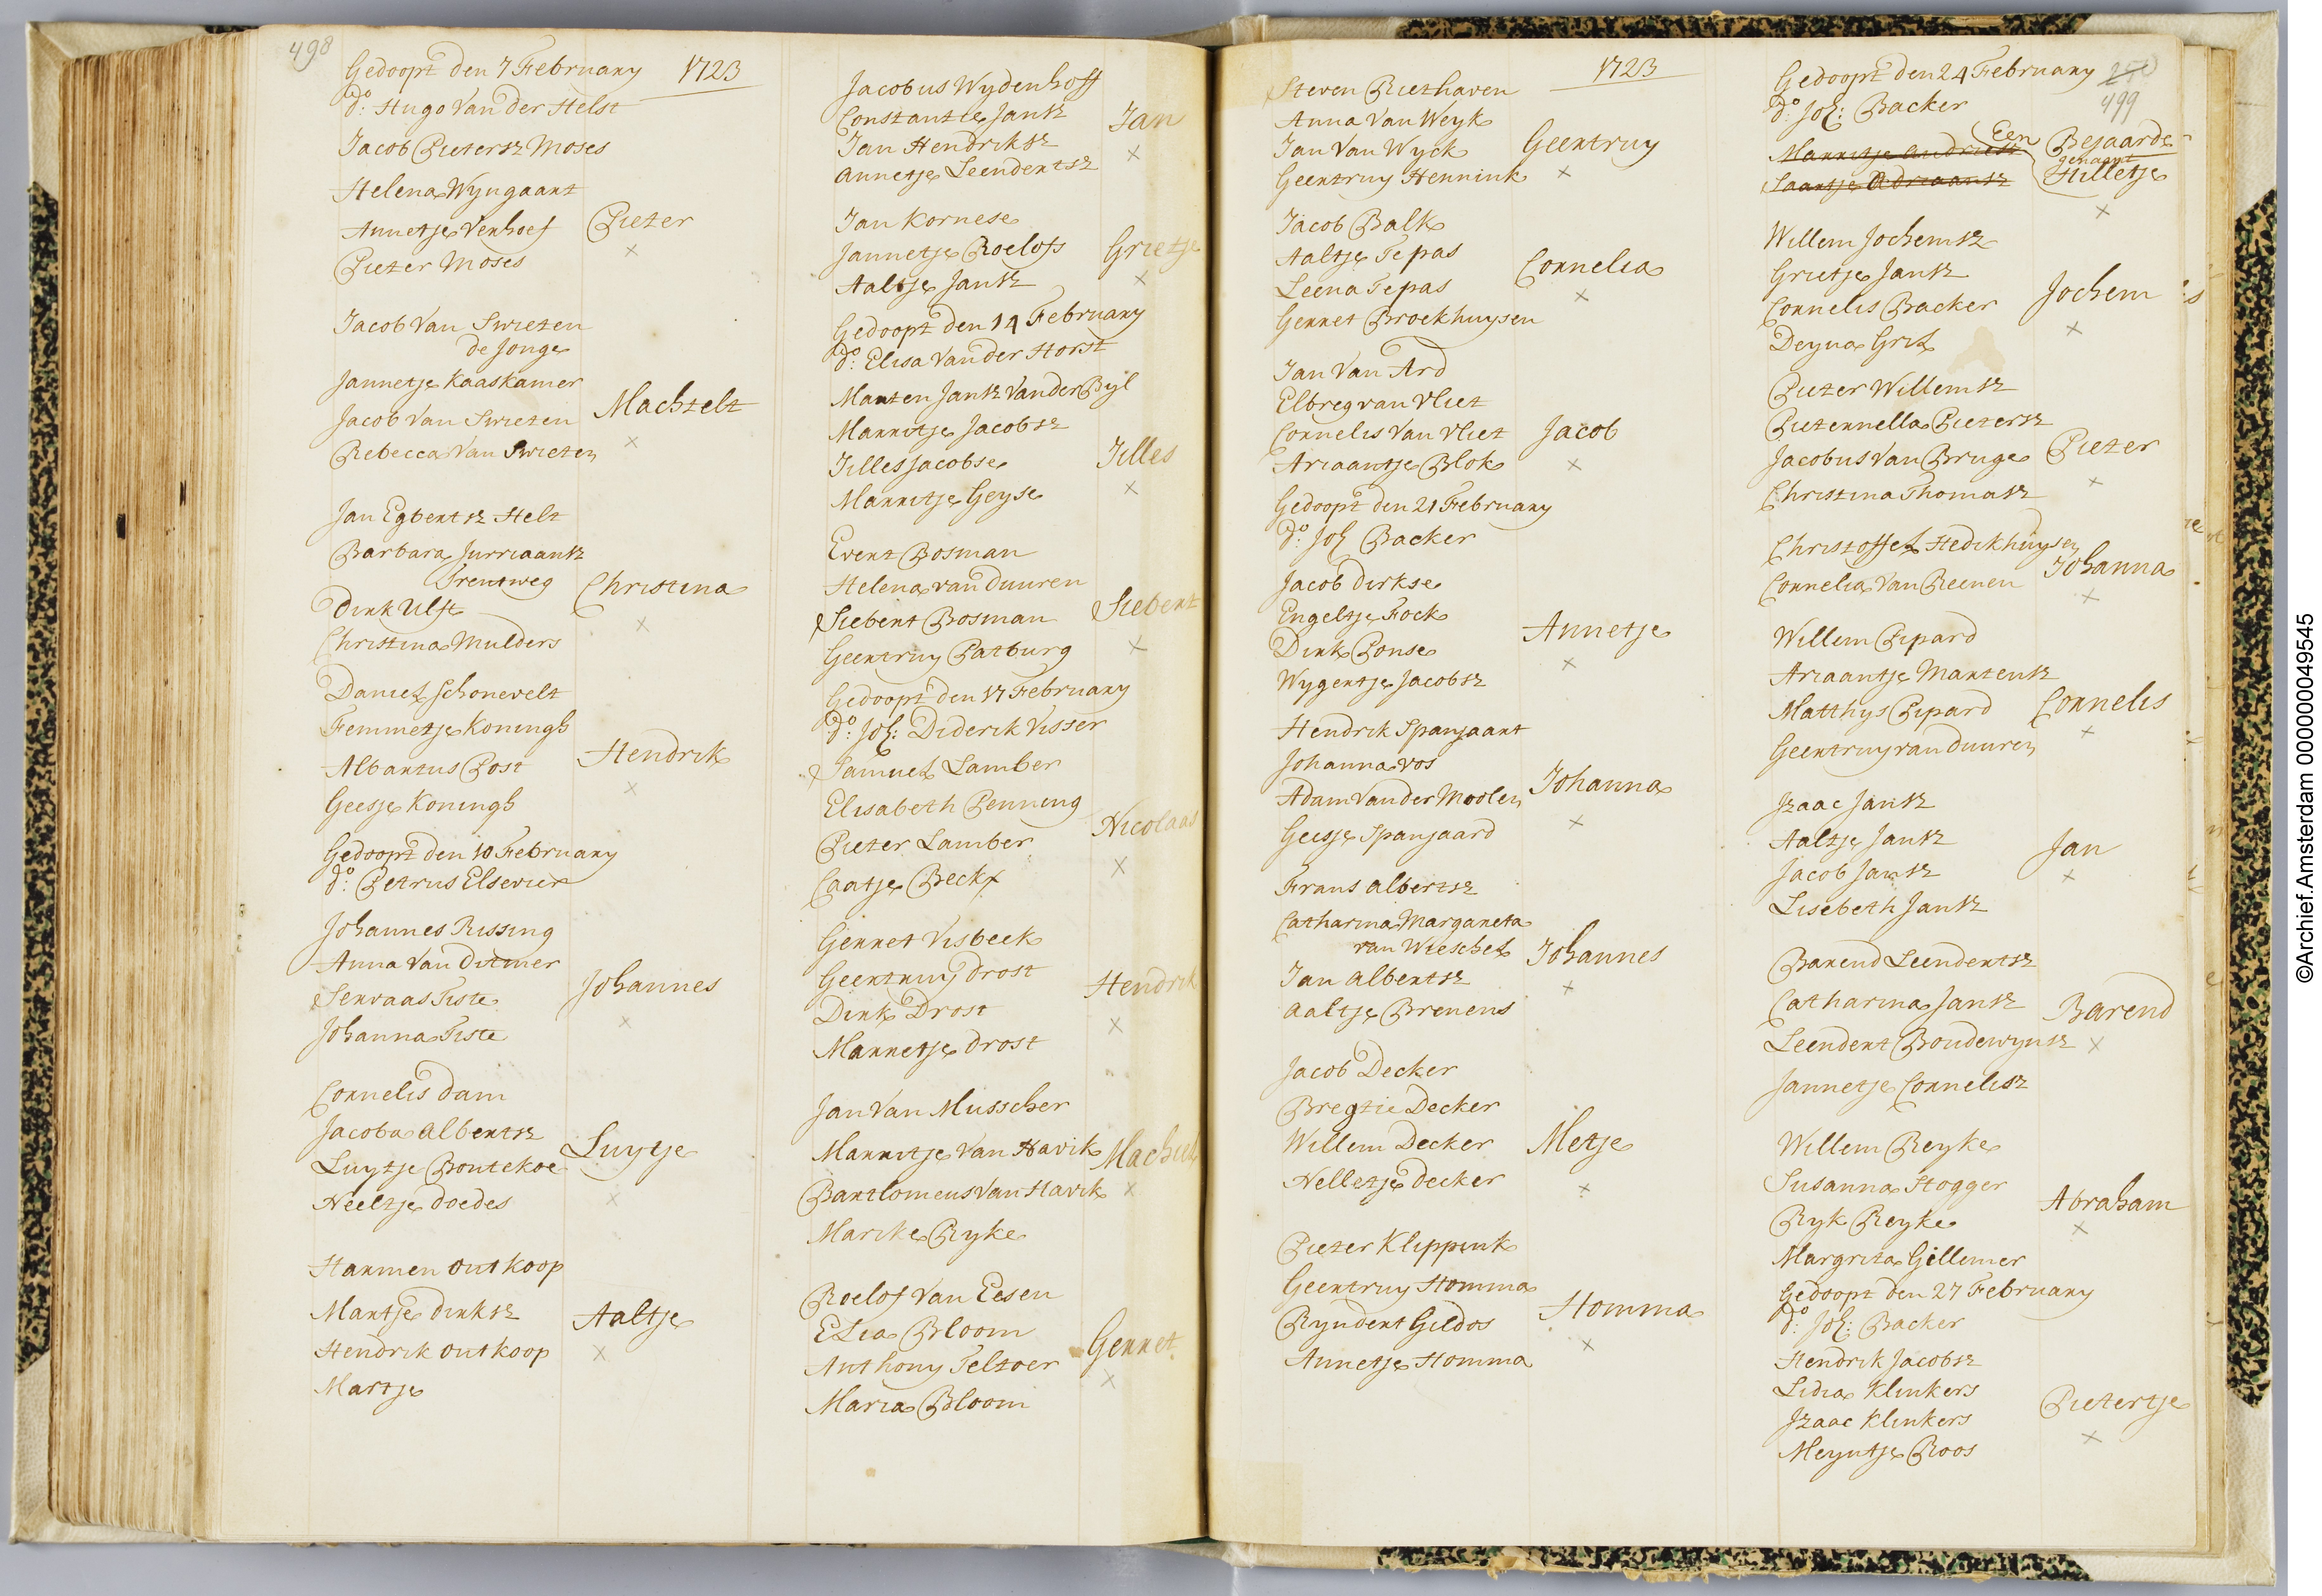 498
Gedoopt den 7 February 1723
do: Hugo Van der Helst
Jacob Pietersz Moses
Helena Wyngaart
Annetje Verhoef
Pieter
Pieter Moses
Jacob Van Swieten
de Jonge
Jannetje Kaaskamer
Machtelt
Jacob Van Swieten
Rebecca Van Swieten
Jan Egbertsz Helt
Barbara Jurriaansz
Trentweg
Christina
Dirk Ulft
Christina Mulders
Daniel Schonevelt
Femmetje Konings
Hendrik
Albartus Post
Geesje Konings
Gedoopt den 10 February
do: Petrus Elsevier
Johannes Rissing
Anna Van Ditmer
Johannes
Servaas Tiste
Johanna Tiste
Cornelis Dam
Jacoba Albertsz
Luytje
Luytje Boutekoe
Neeltje Doedes
Harmen Outkoop
Martje Dirksz
Aaltje
Hendrik Outkoop
Martje
Jacobus Wydenhoff
Constantie Jansz
Jan
Jan Hendriksz
Annetje Leendertsz
Jan Kornese
Jannetje Roelofs
Grietje
Aaltje Jansz
Gedoopt den 14 February
do: Elisa Van der Horst
Marten Jansz Van der Byl
Marritje Jacobsz
Jilles
Jilles Jacobse
Marritje Geyse
Evert Bosman
Helena van Duuren
Siebert
Siebert Bosman
Geertruy Patburg
Gedoopt den 17 February
do: Joh: Diderik Visser
Samuel Lamber
Elisabeth Penning
Nicolaas
Pieter Lamber
Caatje Beckx
Gerret Visbeek
Geertruy Drost
Hendrik
Dirk Drost
Marretje Drost
Jan Van Musscher
Marritje Van Havik
Bartlomeus Van Havik
Marike Ryke
Roelof Van Eesen
Elia Bloom
Gerret
Anthony Teltoer
Maria Bloom
1723
Steven Riethaven
Anna Van Weyk
Geertruy
Jan Van Wyck
Geertruy Hennink
Jacob Balk
Aaltje Tepas
Cornelia
Leena Tepas
Gerret Broekhuysen
Jan Van Ard
Elbreg van Vliet
Jacob
Cornelis Van Vliet
Ariaantje Blok
Gedoopt den 21 February
do: Joh Backer
Jacob Dirkse
Engeltje Fock
Annetje
Dirk Ponse
Wygertje Jacobsz
Hendrik Spanjaart
Johanna Vos
Johanna
Adam Van der Moolen
Geesje Spanjaard
Frans Albertsz
Catharina Margareta
van Wieschel
Johannes
Jan Albertsz
Aaltje Brevens
Jacob Decker
Bregtie Decker
Metje
Willem Decker
Nelletje Decker
Pieter Klippink
Geertruy Homma
Homma
Ryndert Gildos
Annetje Homma
Gedoopt den 24 February
499
do: Joh: Backer
Een Bejaarde
genaamt
Hilletje
Willem Jochemsz
Grietje Jansz
Jochem
Cornelis Backer
Deyna Grit
Pieter Willemsz
Pieternella Pietersz
Pieter
Jacobus Van Bruge
Christina Thomasz
Christoffel Hedikhuysen
Johanna
Cornelia Van Reenen
Willem Pipard
Ariaantje Martensz
Cornelis
Matthys Pipard
Geertruy van Duuren
Izaac Jansz
Aaltje Jansz
Jan
Jacob Jansz
Lisebeth Jansz
Barend Leendertsz
Catharina Jansz
Barend
Leendert Boudewynsz
Jannetje Cornelisz
Willem Reyke
Susanna Stogger
Abraham
Ryk Reyke
Margrita Gillemer
Gedoopt den 27 February
do: Joh: Backer
Hendrik Jacobsz
Lidia Klinkers
Pietertje
Izaac Klinkers
Meyntje Roos
©Archief.Amsterdam 000000049545